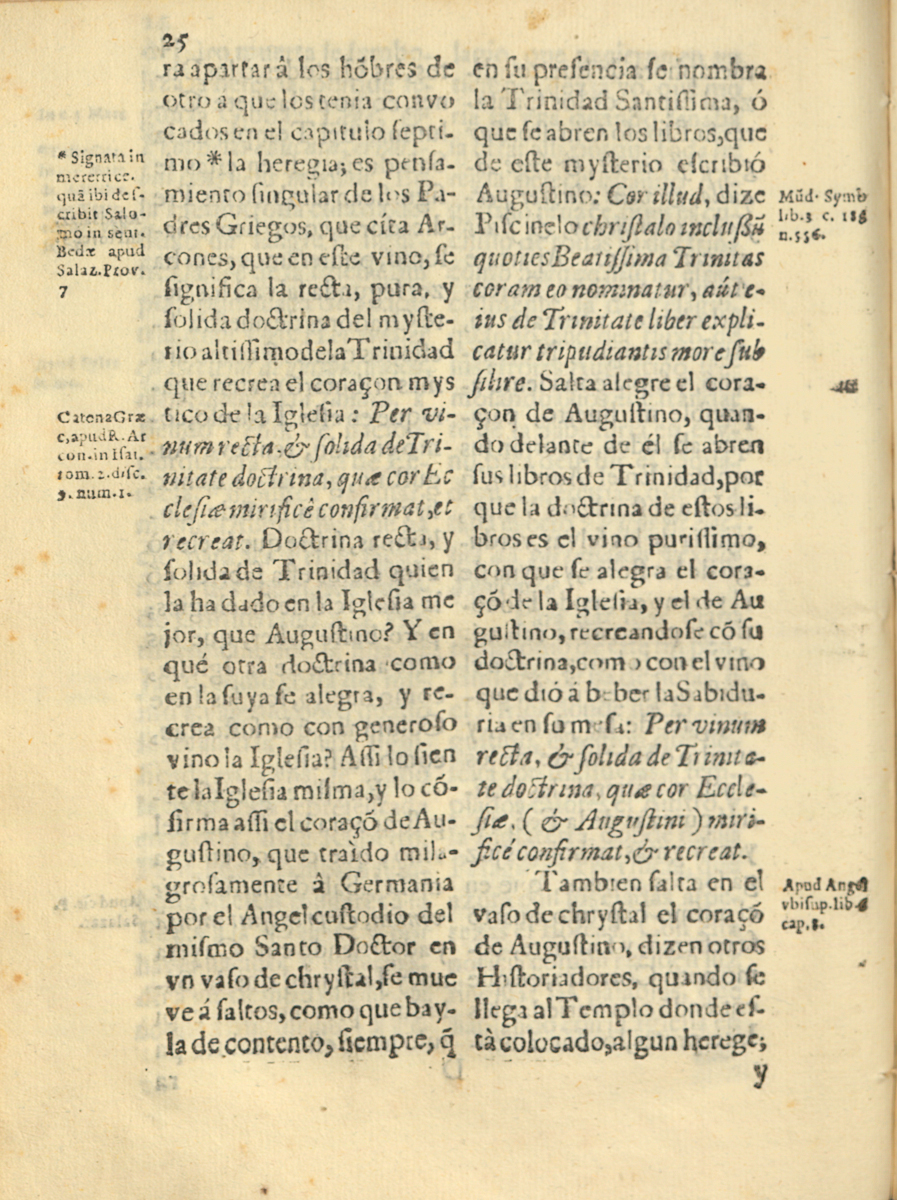 25
ra apartar â los hõbres de
otro a que los tenia convo
cados en el capitulo septi-
mo * la heregia; es pensa-
miento singular de los Pa-
dres Griegos, que cíta Ar-
cones, que en este vino, se
significa la recta, pura, y
solida doctrina del myste-
rio altissimo de la Trinidad
que recrea el coraçon mys
tico de la Iglesia: Per vi-
num recta, & solida de Tri-
nitate doctrina, quæ cor Ec
clesiæ mirificê confirmat, et
recreat. Doctrina recta, y
solida de Trinidad quien
la ha dado en la Iglesia me
jor, que Augustino? Y en
qué otra doctrina como
en la suya se alegra, y re-
crea como con generoso
vino la Iglesia? Assi lo sien
te la Iglesia misma, y lo cõ-
firma assi el coraçõ de Au-
gustino, que traìdo mila-
grosamente â Germania
por el Angel custodio del
mismo Santo Doctor en
vn vaso de chrystal, se mue
ve á saltos, como que bay-
la de contento, siempre, q̃
* Signata in
meretrice.
quã ibi des-
cribit Salo-
mo in sent.
Bedæ apud
Salaz. Prov.
7
Catena Græ
c, apud R. Ar
con. in Isai.
tom. 2. disc.
9. num. 1.
en su presencia se nombra
la Trinidad Santissima, ó
que se abren los libros, que
de este mysterio escribió
Augustino: Cor illud, dize
Piscinelo christalo inclussũ
quoties Beatissima Trinitas
coram eo nominatur, aút e-
ius de Trinitate liber expli-
catur tripudiantis more sub
silire. Salta alegre el cora-
çon de Augustino, quan-
do delante de él se abren
sus libros de Trinidad, por
que la doctrina de estos li-
bros es el vino purissimo,
con que se alegra el cora-
çõ de la Iglesia, y el de Au
gustino, recreandose cõ su
doctrina, como con el vino
que dió á beber la Sabidu-
ria en su mesa: Per vinum
recta, & solida de Trinita-
te doctrina, quæ cor Eccle-
siæ, (& Augustini) miri-
ficé confirmat, & recreat.
Tambien salta en el
vaso de chrystal el coraçõ
de Augustino, dizen otros
Historiadores, quando se
llega al Templo donde es-
tà colocado, algun herege;
y
Mũd. Symb
lib. 3 c.
n. 536.
Apud Angel
vbi sup. lib.
cap.